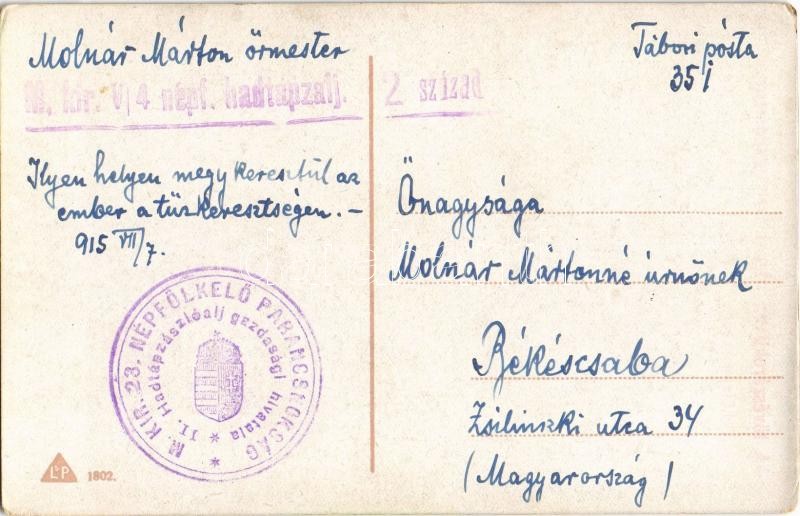 Molnár Márton őrmester
M. kir. V/4 népf. hadtápzalj. 2 század
Ilyen helyen megy keresztül az
ember a tűzkeresztségen. –
915 VII/7.
M. KIR. 23. NÉPFÖLKELŐ PARANCSNOKSÁG
II. Hadtápzászlóalj gazdasági hivatala
L&P 1802.
Tábori pósta
351
Őnagysága
Molnár Mártonné úrnőnek
Békéscsaba
Zsilinszki utca 34
(Magyarország)